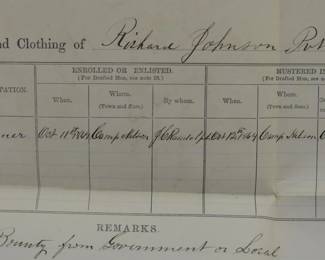 nd Clothing of Richard Johnson Pvt
ENROLLED OR ENLISTED. MUSTERED I
(For Drafted Men, see note 15.) (For Drafted Men, see no
TATION. When. Where. By whom. When. Where.
(Town and State.) (Town and State.)
ner Oct 11th 1864 Camp Nelson J C Randolph Oct 12th 1864 Camp Nelson
REMARKS.
Bounty from Government or Local